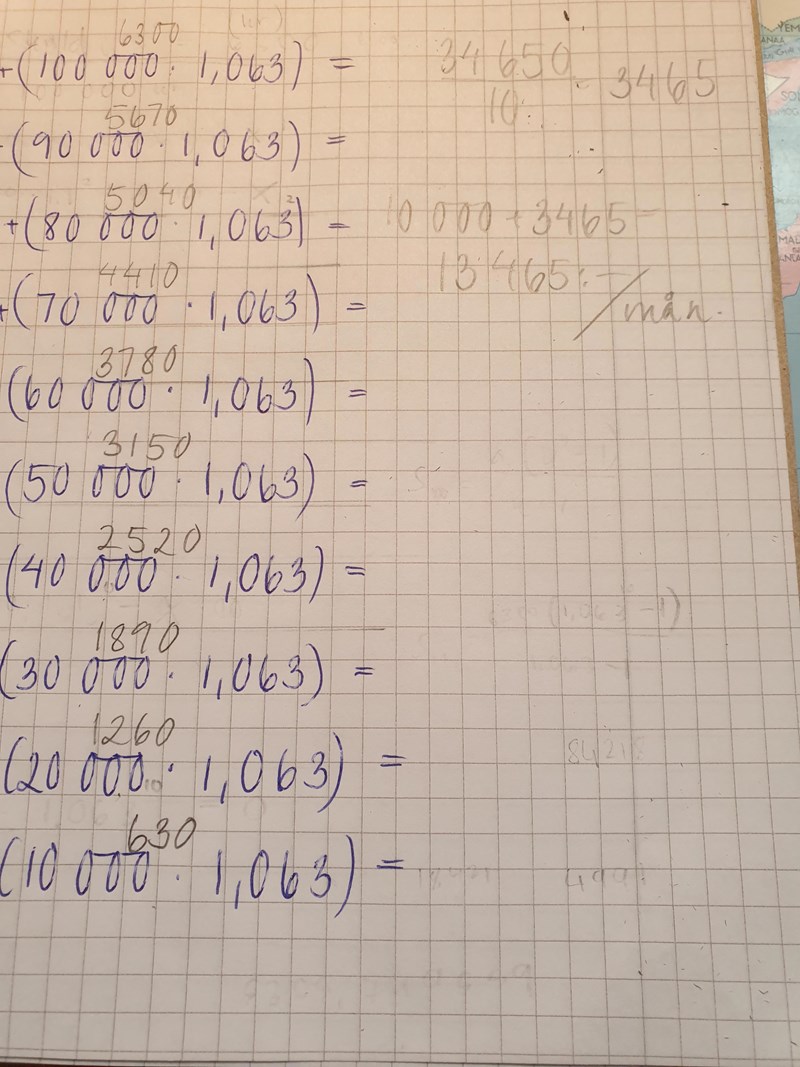 6300
+(100 000 · 1,063) =
34650
10
3465
5670
(90 000 · 1,063) =
5040
+(80 000 · 1,063) =
10 000 + 3465
4410
13 465:-
/mån.
+(70 000 · 1,063) =
3780
(60 000 · 1,063) =
3150
(50 000 · 1,063) =
2520
(40 000 · 1,063) =
1890
(30 000 · 1,063) =
1260
(20 000 · 1,063) =
630
(10 000 · 1,063) =